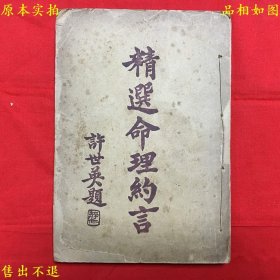 原本实拍
品相如图
精選命理約言
許世英題
售出不退